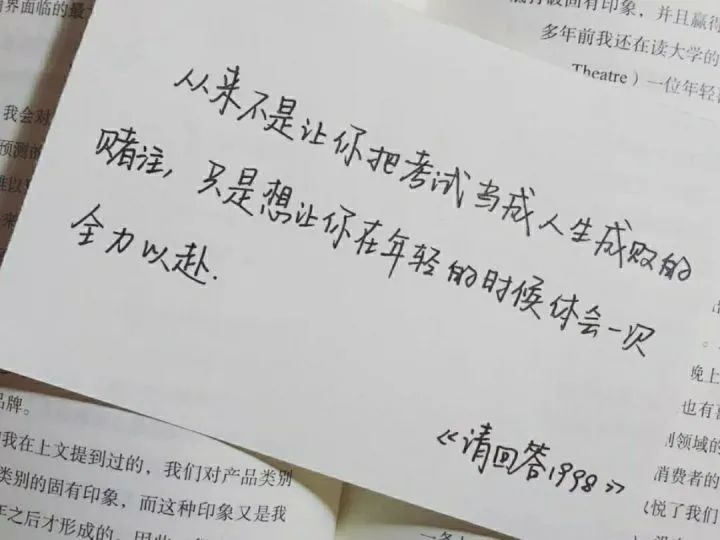 界面临的最
破固有印象，并且赢得
多年前我还在读大学的
Theatre）一位年轻
我会对
预测的
从来不是让你把考试当成人生成败的
赌注，只是想让你在年轻的时候体会一次
全力以赴.
《请回答1998》
品牌。
我在上文提到过的，我们对产品类别
类别的固有印象，而这种印象又是我
之后才形成的。因此
晚上
也有
别领域的
消费者的
悦了我们